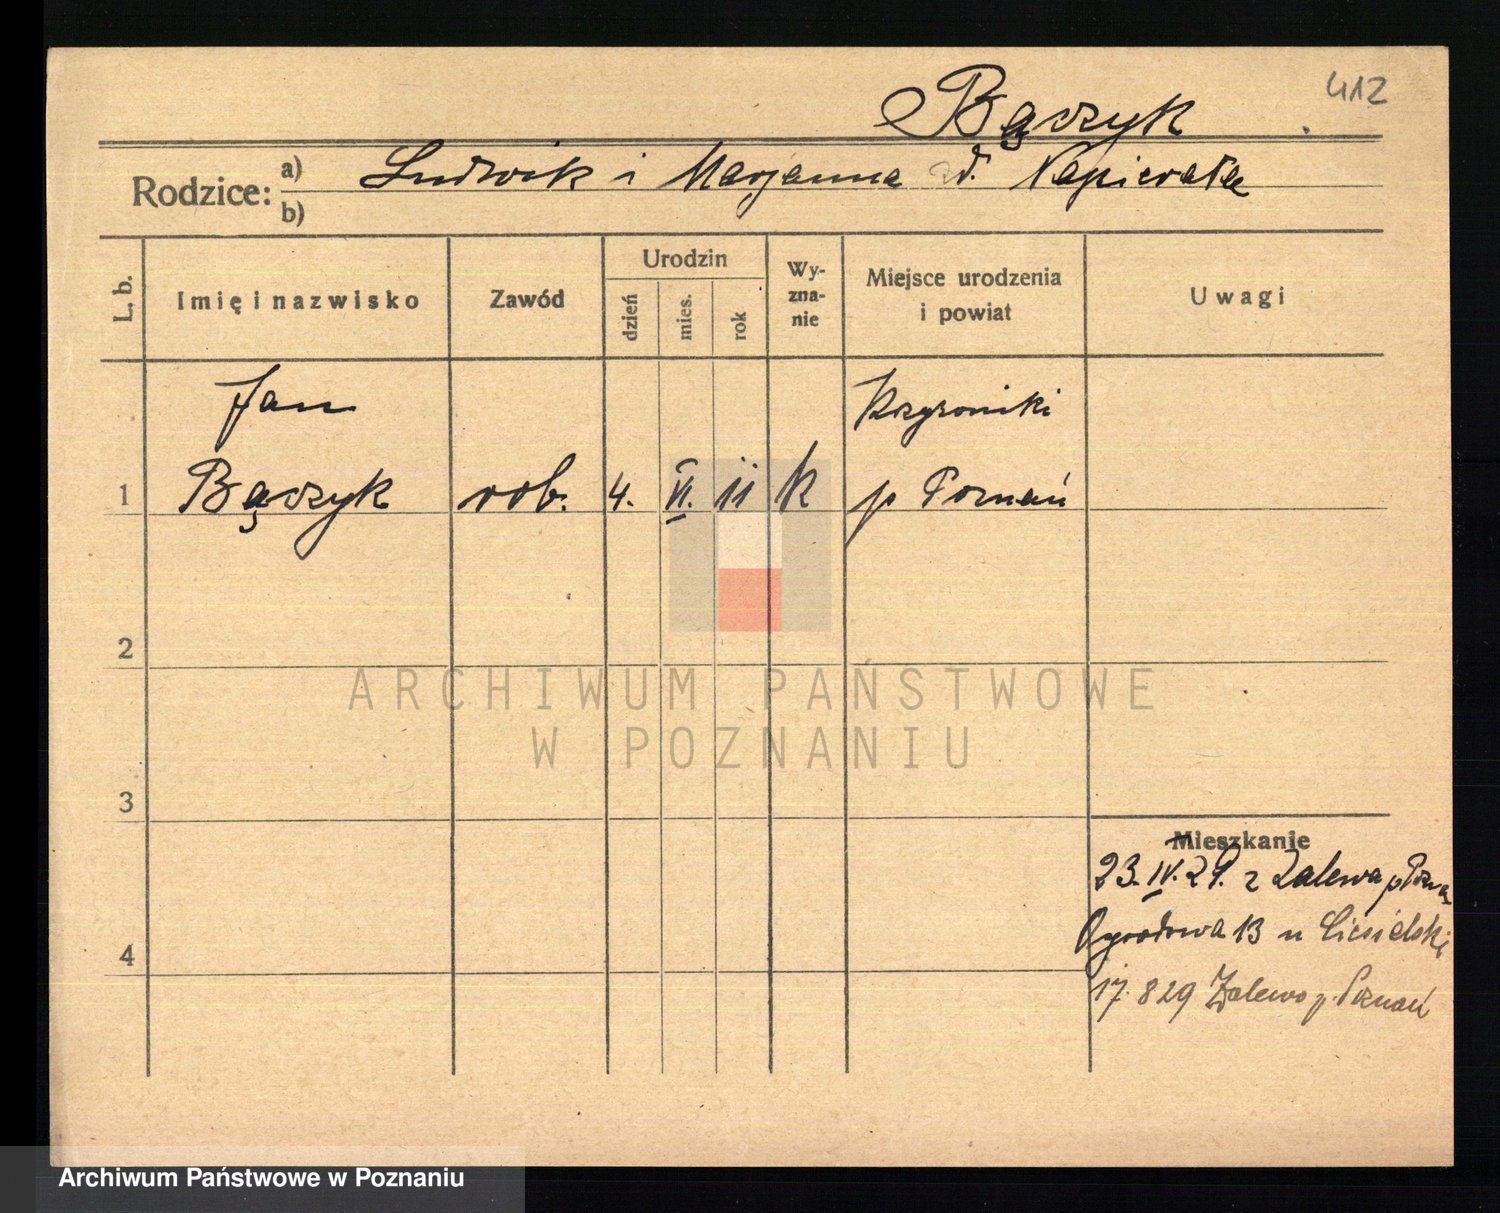 412
Bączyk
Rodzice: a) Ludwik i Marjanna d. Napierała
b)
L. b.
Imię i nazwisko
Zawód
Urodzin
dzień
mies.
rok
Wy-
zna-
nie
Miejsce urodzenia
i powiat
Uwagi
Jan
Krzyżoniki
1 Bączyk rob. 4. VI. 11 k p Poznań
2
3
4
Mieszkanie
23.IV.29. z Zalewa p Pozna
Ogrodowa 13 u Ciesielski
17.829 Zalewo p. Poznań
ARCHIWUM PAŃSTWOWE
W POZNANIU
Archiwum Państwowe w Poznaniu